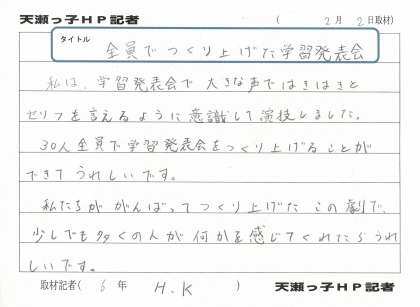 天瀬っ子HP記者 ( 2月 2日取材)
タイトル
全員でつくり上げた学習発表会
私は、学習発表会で大きな声ではきはきと
セリフを言えるように意識して演技しました。
30人全員で学習発表会をつくり上げることが
できてうれしいです。
私たちががんばってつくり上げたこの劇で、
少しでも多くの人が何かを感じてくれたらうれ
しいです。
取材記者( 6年 H.K ) 天瀬っ子HP記者